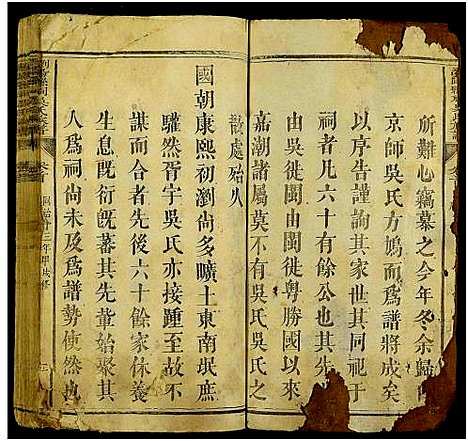 所難心竊慕之今年冬余歸自
京師吳氏方鳩而爲譜將成矣
以序告謹詢其家世其同祀于
祠者凡六十有餘公也其先
吳由閩徙粤勝國以來
嘉潮諸屬莫不有吳氏吳氏之
散處始八
國朝康熙初瀏尚多曠土東南垊庶
驩然胥宇吳氏亦接踵至故不
謀而合者先後六十餘家休養
生息旣衍旣蕃其先輩始聚其
人爲祠尚未及爲譜勢使然也
同治十三年甲戌修